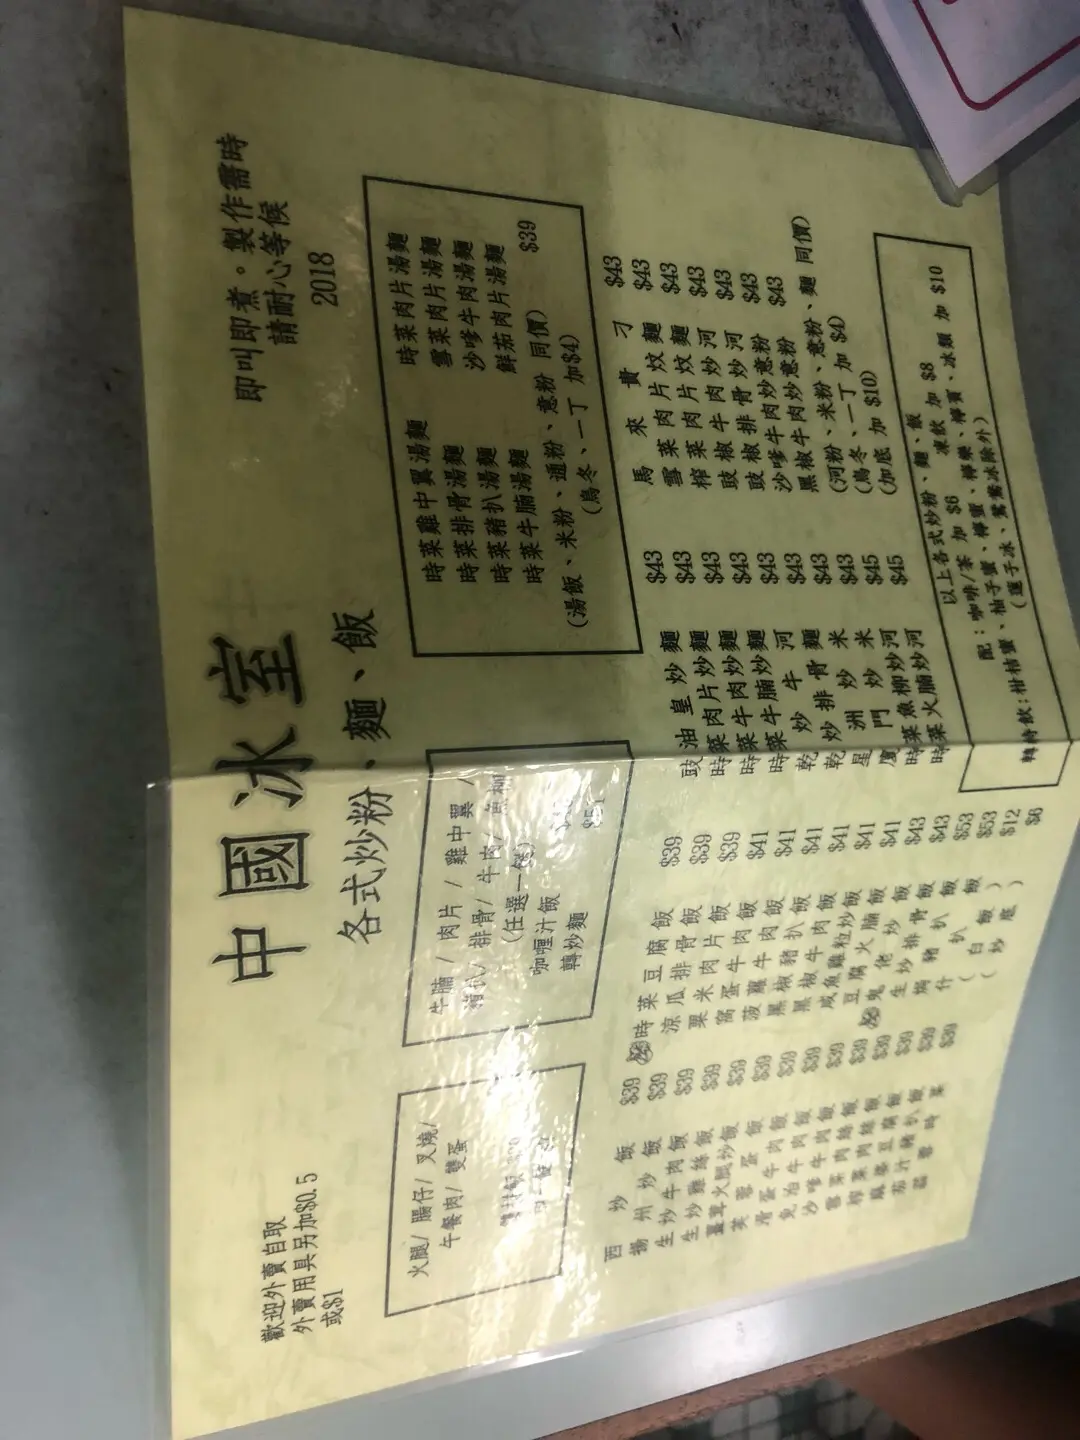 中國冰室
各式炒粉、麵、飯
歡迎外賣自取
外賣用具另加$0.5
或$1
即叫即煮。製作需時
請耐心等候
2018
火腿/ 腸仔/ 叉燒/
午餐肉/ 雙蛋
牛腩/ 肉片/ 雞中翼/
豬扒/ 排骨/ 牛肉/ 魚柳
(任選一餸)
咖喱汁飯
轉炒麵 $51
時菜雞中翼湯麵 時菜肉片湯麵
時菜排骨湯麵 雪菜肉片湯麵
時菜豬扒湯麵 沙嗲牛肉湯麵
時菜牛腩湯麵 鮮茄肉片湯麵
$39
(湯飯、米粉、通粉、意粉 同價)
(烏冬、一丁 加$4)
西炒飯 $39
揚州炒飯 $39
生炒牛肉飯 $39
生炒雞絲飯 $39
薑茸火腿炒飯 $39
芙蓉蛋飯 $39
滑蛋牛肉飯 $39
免治牛肉飯 $39
沙嗲牛肉飯 $39
雪菜肉絲飯 $39
榨菜肉絲飯 $39
麻婆豆腐飯 $39
茄汁豬扒飯 $39
時菜豆腐飯 $39
涼瓜排骨飯 $39
粟米肉片飯 $39
窩蛋牛肉飯 $41
菠蘿牛肉飯 $41
黑椒豬扒飯 $41
黑椒牛肉飯 $41
咸魚雞粒炒飯 $41
豆腐火腩飯 $41
鬼佬炒飯 $43
生炒排骨飯 $43
焗豬扒飯 $53
什扒飯 $53
(白飯) $12
(炒底) $6
豉油皇炒麵 $43
時菜肉片炒麵 $43
時菜牛肉炒麵 $43
時菜牛腩炒麵 $43
乾炒牛河 $43
乾炒排骨麵 $43
星洲炒米 $43
廈門炒米 $43
時菜魚柳炒河 $45
時菜火腩炒河 $45
馬來貴刁 $43
雪菜肉片炆麵 $43
榨菜肉片炆麵 $43
豉椒牛肉炒河 $43
豉椒排骨炒河 $43
沙嗲牛肉炒意粉 $43
黑椒牛肉炒意粉 $43
(河粉、米粉、意粉、麵 同價)
(烏冬、一丁 加 $4)
(加底 加 $10)
以上各式炒粉、麵、飯
配：咖啡/茶 加 $6 凍飲 加 $8
轉特飲:柑桔蜜、柚子蜜、檸蜜、檸樂、檸賓、冰類 加 $10
(蓮子冰、鴛鴦冰除外)